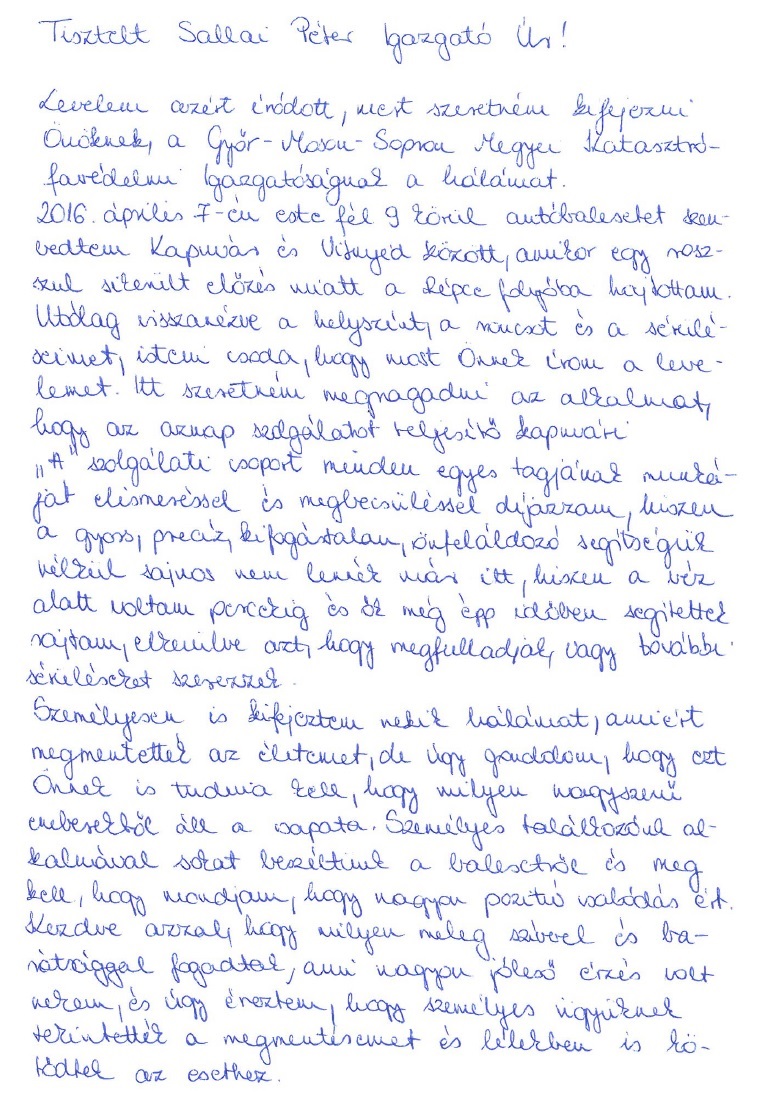 Tisztelt Sallai Péter Igazgató Úr!
Levelem azért íródott, mert szeretném kifejezni
Önöknek, a Győr-Moson-Sopron Megyei Katasztró-
favédelmi Igazgatóságnak a hálámat.
2016. április 7-én este fél 9 körül autóbalesetet szen-
vedtem Kapuvár és Vitnyéd között, amikor egy rosz-
szul sikerült előzés miatt a Répce folyóba hajtottam.
Utólag visszanézve a helyszínt, a roncsot és a sérülé-
seimet, isteni csoda, hogy most Önnek írom a leve-
lemet. Itt szeretném megragadni az alkalmat,
hogy az aznap szolgálatot teljesítő kapuvári
„A" szolgálati csoport minden egyes tagjának munká-
ját elismeréssel és megbecsüléssel díjazzam, hiszen
a gyors, precíz, kifogástalan, önfeláldozó segítségük
nélkül sajnos nem lennék már itt, hiszen a víz
alatt voltam percekig és ők még épp időben segítettek
rajtam, elkerülve azt, hogy megfulladjak, vagy további
sérüléseket szerezzek.
Személyesen is kifejeztem nekik hálámat, amiért
megmentették az életemet, de úgy gondolom, hogy ezt
Önnek is tudnia kell, hogy milyen nagyszerű
emberekből áll a csapata. Személyes találkozónk al-
kalmával sokat beszéltünk a balesetről és meg
kell, hogy mondjam, hogy nagyon pozitív csalódás ért.
Kezdve azzal, hogy milyen meleg szívvel és ba-
rátsággal fogadtak, ami nagyon jóleső érzés volt
nekem, és úgy éreztem, hogy személyes ügyüknek
tekintették a megmentésemet és lélekben is kö-
tődtek az esethez.